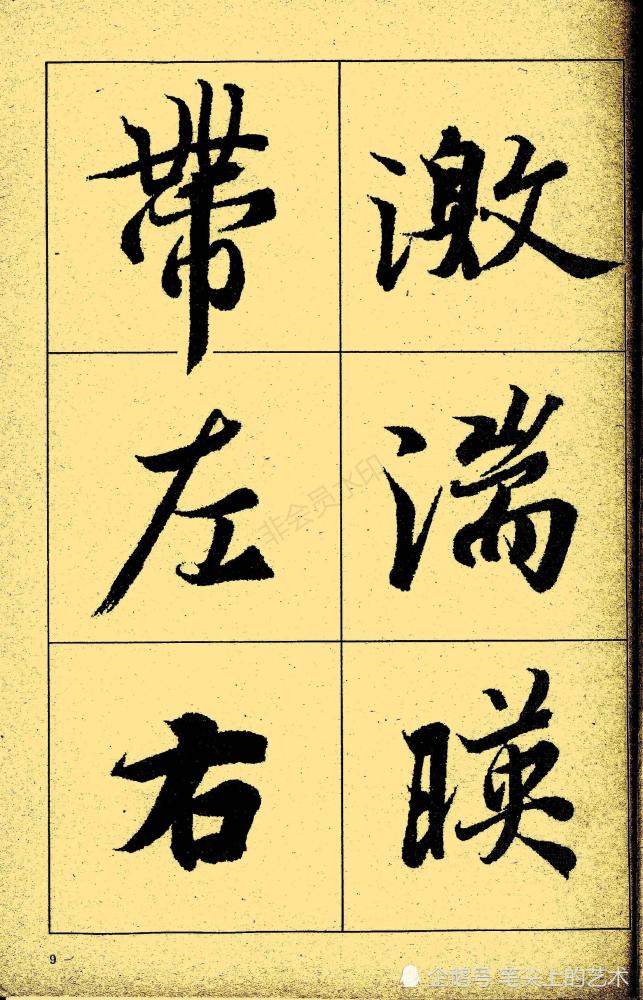 激
湍
暎
帶
左
右
非会员水印
9
企鹅号 笔尖上的艺术